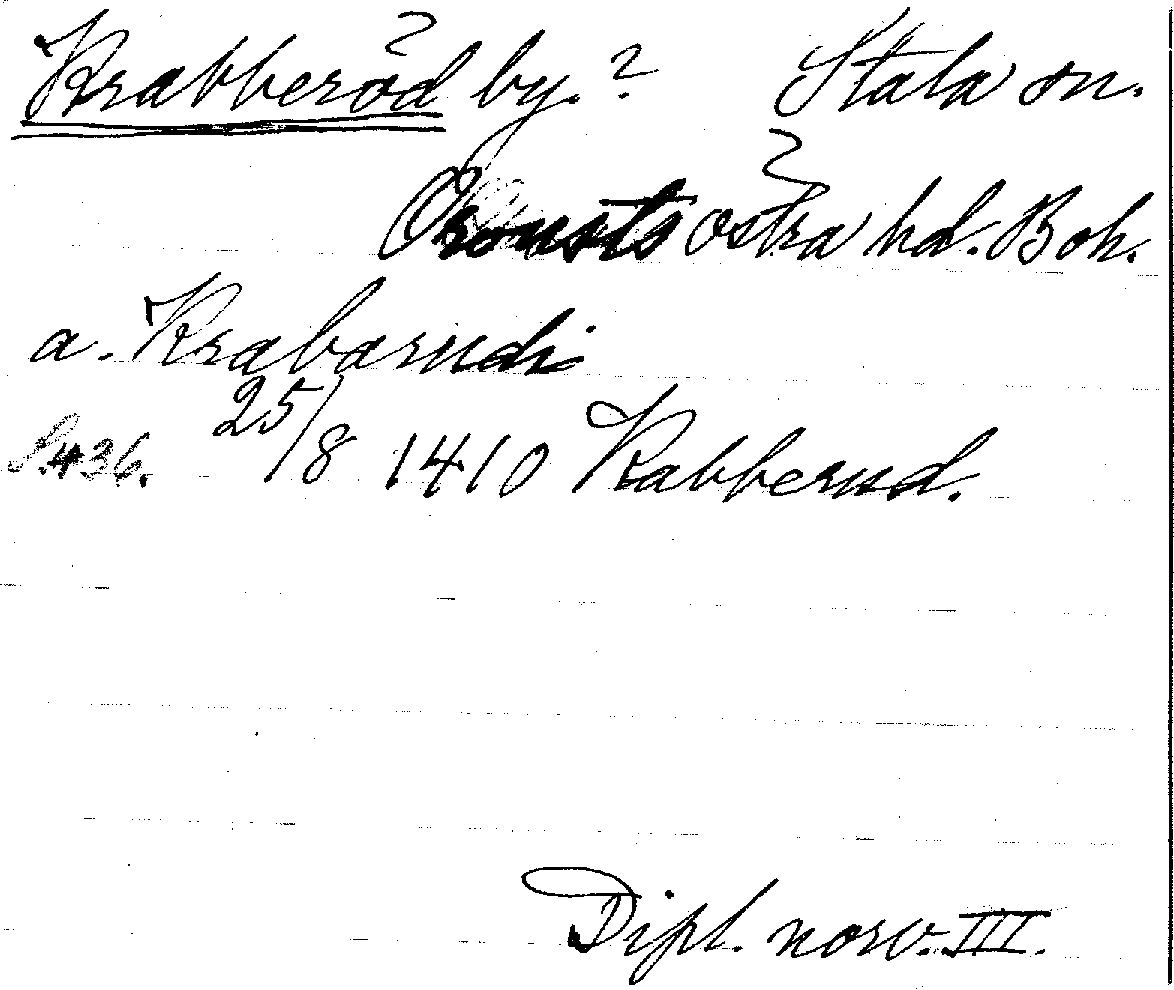 Krabberöd by.? Stala sn.
Orousts östra hd. Boh.
a. Krabarudi
S.436. 25/8 1410 Kabberud.
Dipl. norv. III.